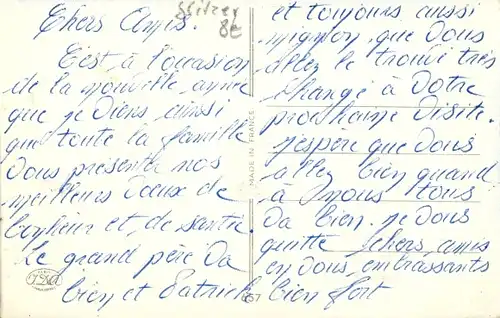 Chers Amis.
C'est à l'occasion
de la nouvelle année
que je viens, ainsi
que toute la famille
vous présenter nos
meilleurs vœux de
bonheur et, de santée.
Le grand père va
bien et Patrick
et toujours aussi
mignon, que vous
allez le trouvé très
changé à votre
prochaine visite.
j'espère que vous
allez bien quand
à nous tous
va bien. je vous
quitte chers, amis
en vous, embrassants
bien fort
8€
MADE IN FRANCE
657